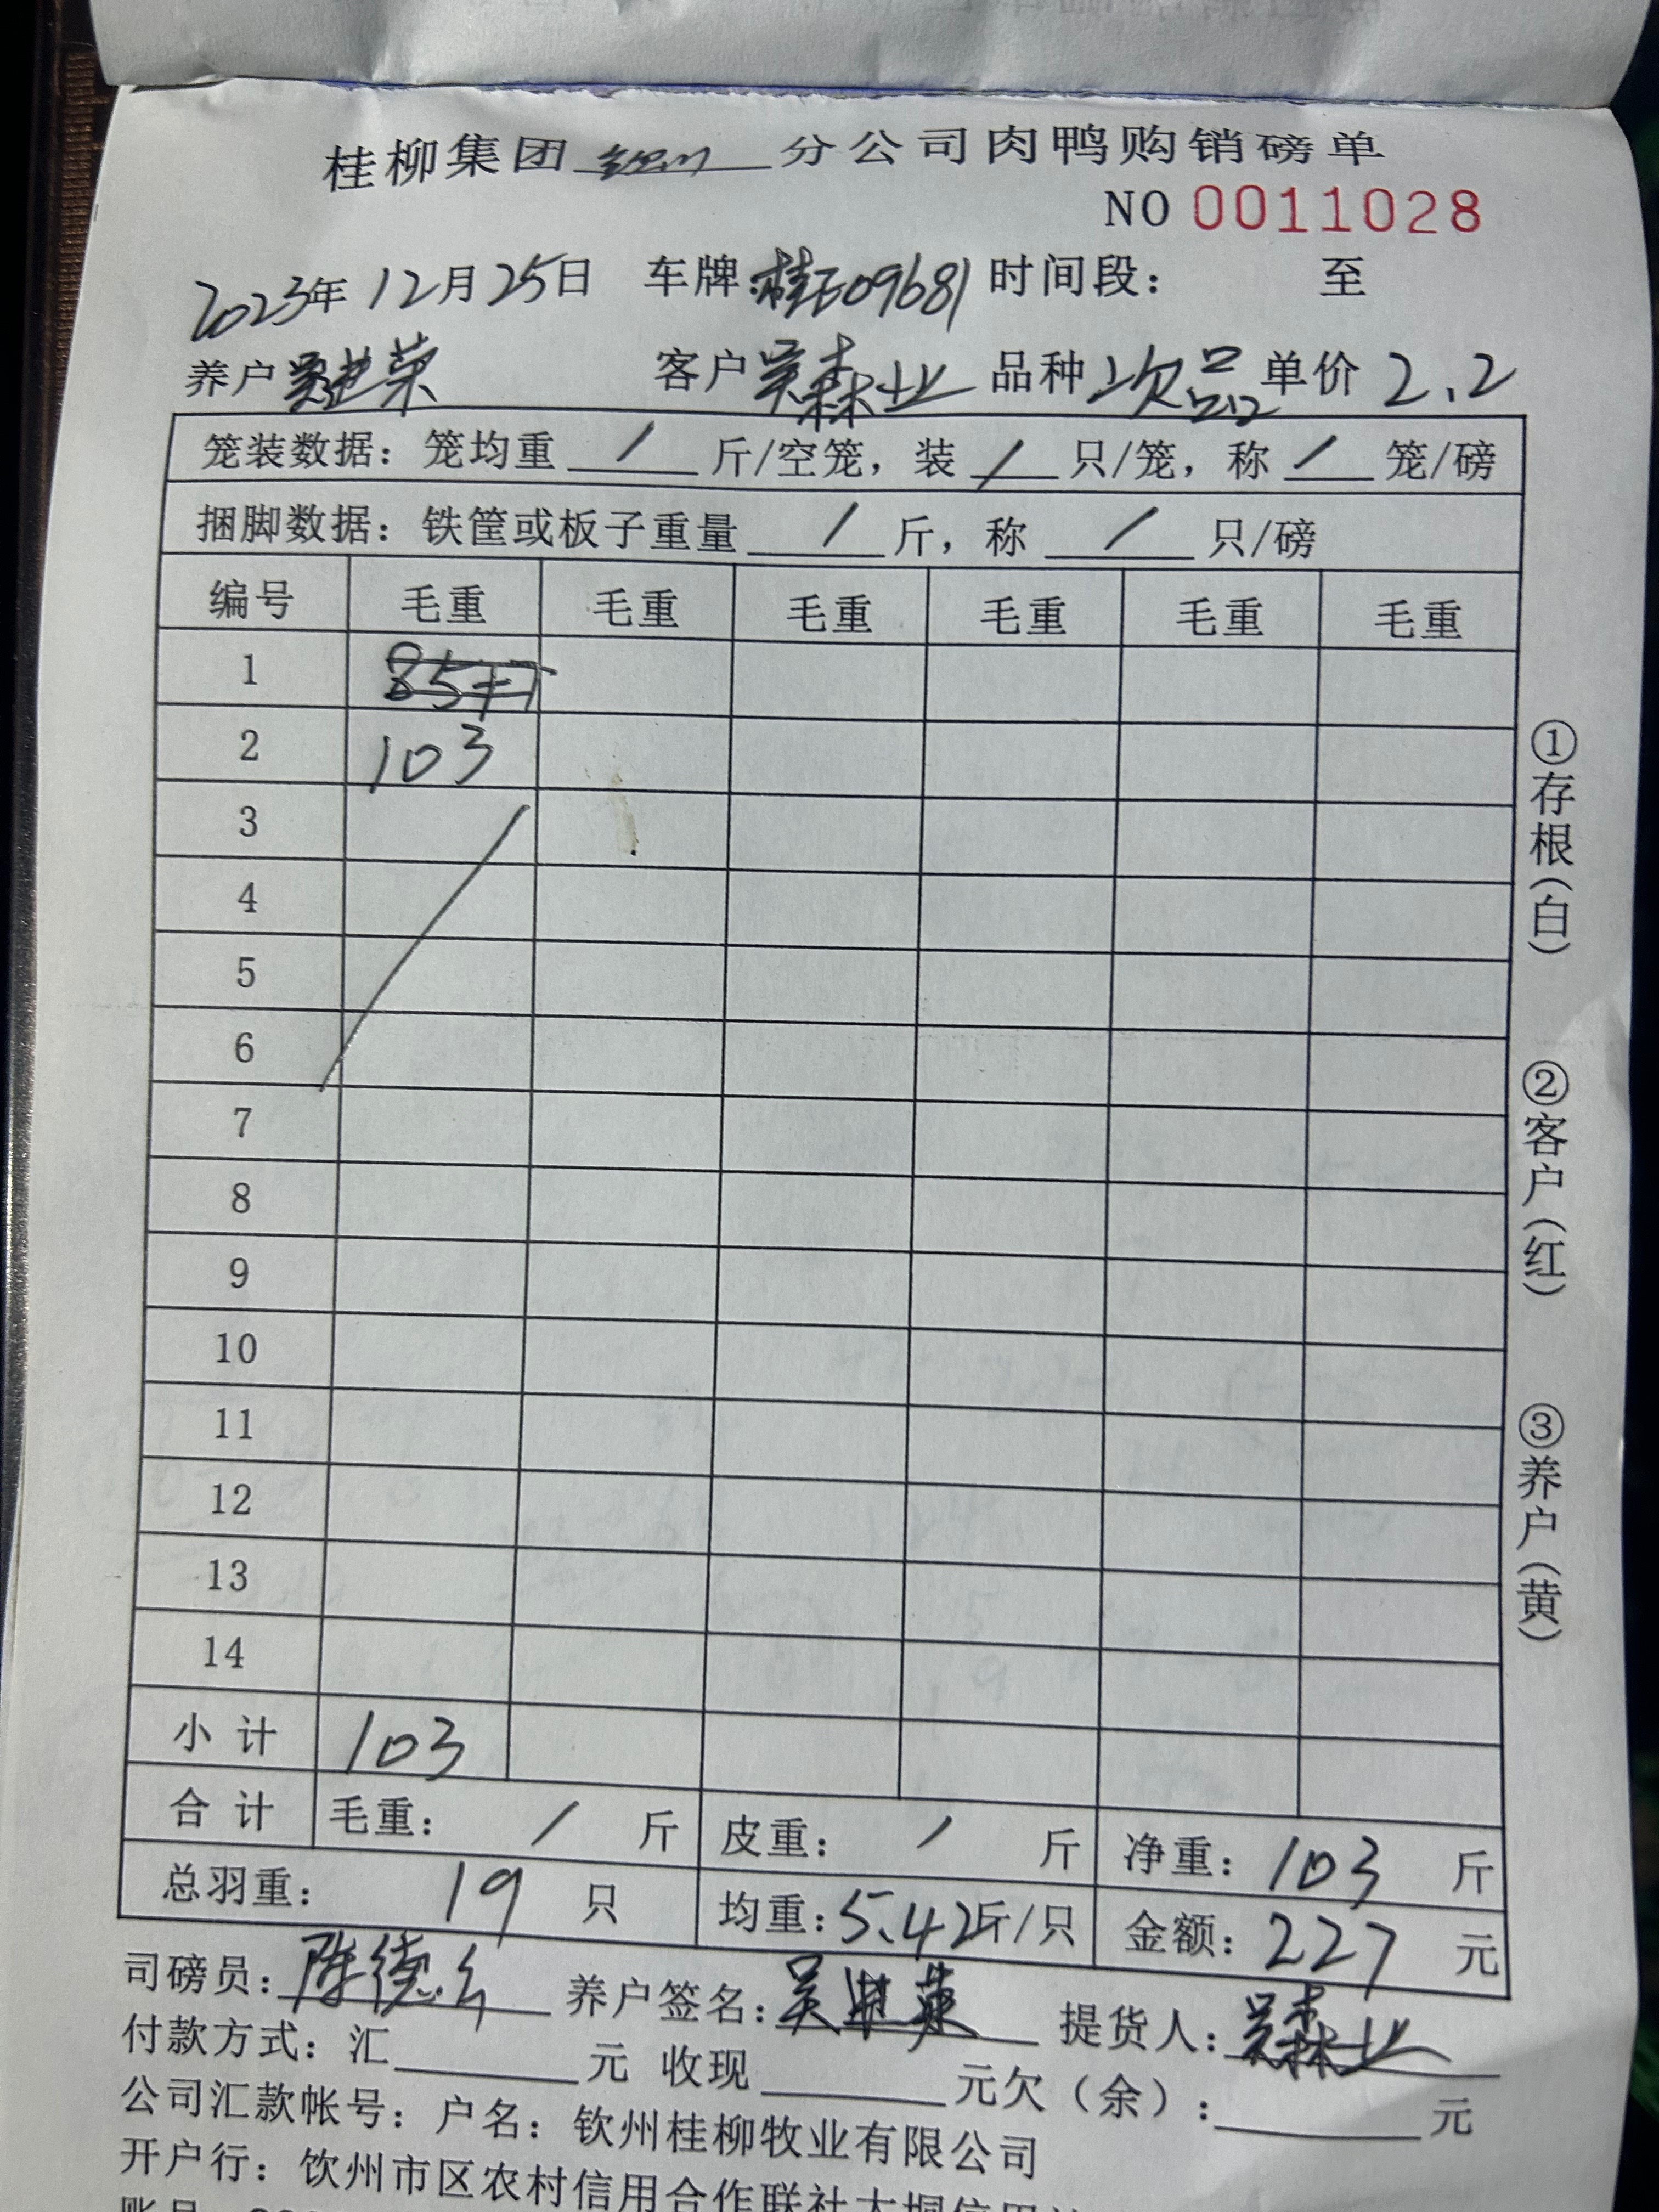 桂柳集团 分公司肉鸭购销磅单
NO 0011028
2023年12月25日 车牌:桂E09681 时间段: 至
养户 客户 吴森业 品种 次品 单价 2.2
笼装数据: 笼均重 / 斤/空笼, 装 / 只/笼, 称 / 笼/磅
捆脚数据: 铁筐或板子重量 / 斤, 称 / 只/磅
编号 毛重 毛重 毛重 毛重 毛重 毛重
1
2 103
3
4
5
6
7
8
9
10
11
12
13
14
小计 103
合计 毛重: / 斤 皮重: / 斤 净重: 103 斤
总羽重: 19 只 均重: 5.42斤/只 金额: 227 元
司磅员: 陈德 养户签名: 吴 提货人: 吴森业
付款方式: 汇 元 收现 元欠(余): 元
公司汇款帐号: 户名: 钦州桂柳牧业有限公司
开户行: 钦州市区农村信用合作联社大垌信用
①存根(白)
②客户(红)
③养户(黄)